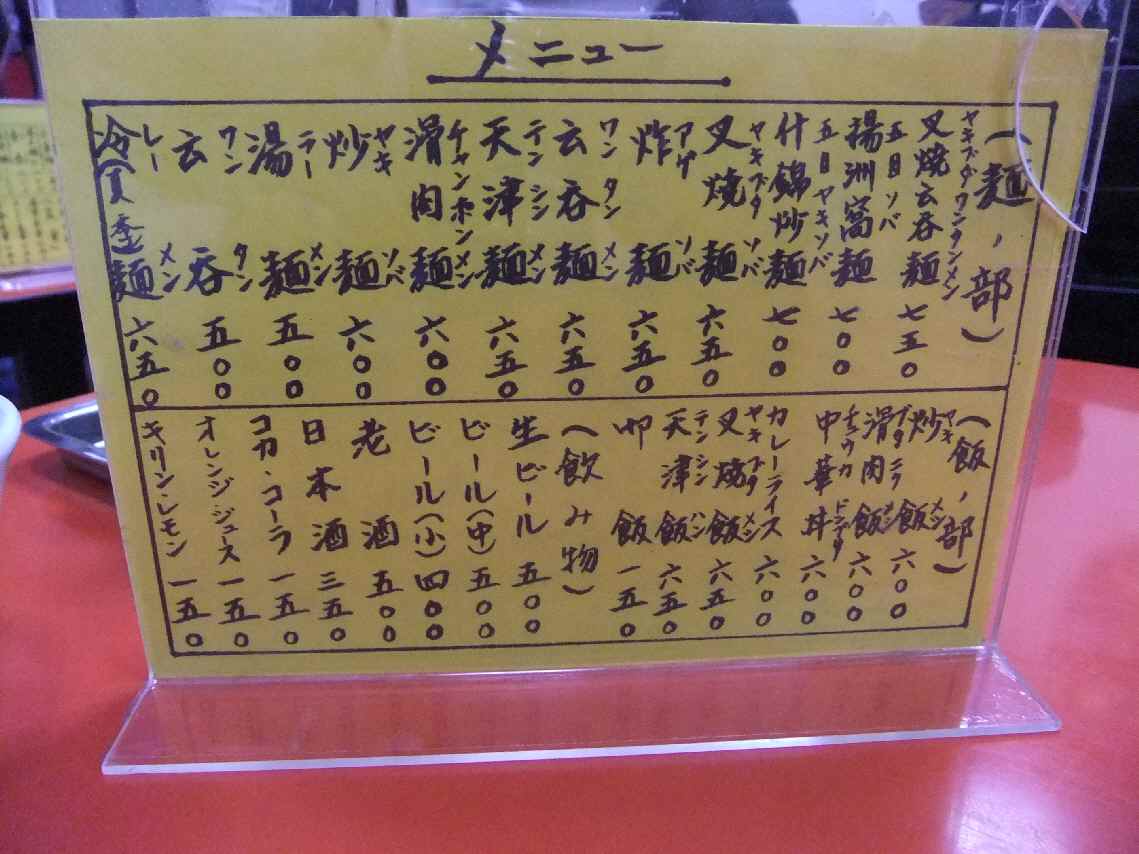 メニュー
(麺ノ部)
ヤキブタワンタンメン
叉焼云呑麺 七五〇
五目ソバ
揚洲窩麺 七〇〇
五目ヤキソバ
什錦炒麺 七〇〇
ヤキブタソバ
叉焼麺 六五〇
アゲソバ
炸麺 六五〇
ワンタンメン
云呑麺 六五〇
テンシンメン
天津麺 六五〇
チャンポンメン
滑肉麺 六〇〇
ヤキソバ
炒麺 六〇〇
ラーメン
湯麺 五〇〇
ワンタン
云呑 五〇〇
レーメン
冷(夏季)麺 六五〇
(飯ノ部)
ヤキメシ
炒飯 六〇〇
メシ
滑肉飯 六〇〇
チュウカドンブリ
中華丼 六〇〇
カレーライス 六〇〇
ヤキブタメシ
叉焼飯 六五〇
テンシンハン
天津飯 六五〇
飯 一五〇
(飲み物)
生ビール 五〇〇
ビール(中) 五〇〇
ビール(小) 四〇〇
老酒 五〇〇
日本酒 三五〇
コカ・コーラ 一五〇
オレンジジュース 一五〇
キリンレモン 一五〇